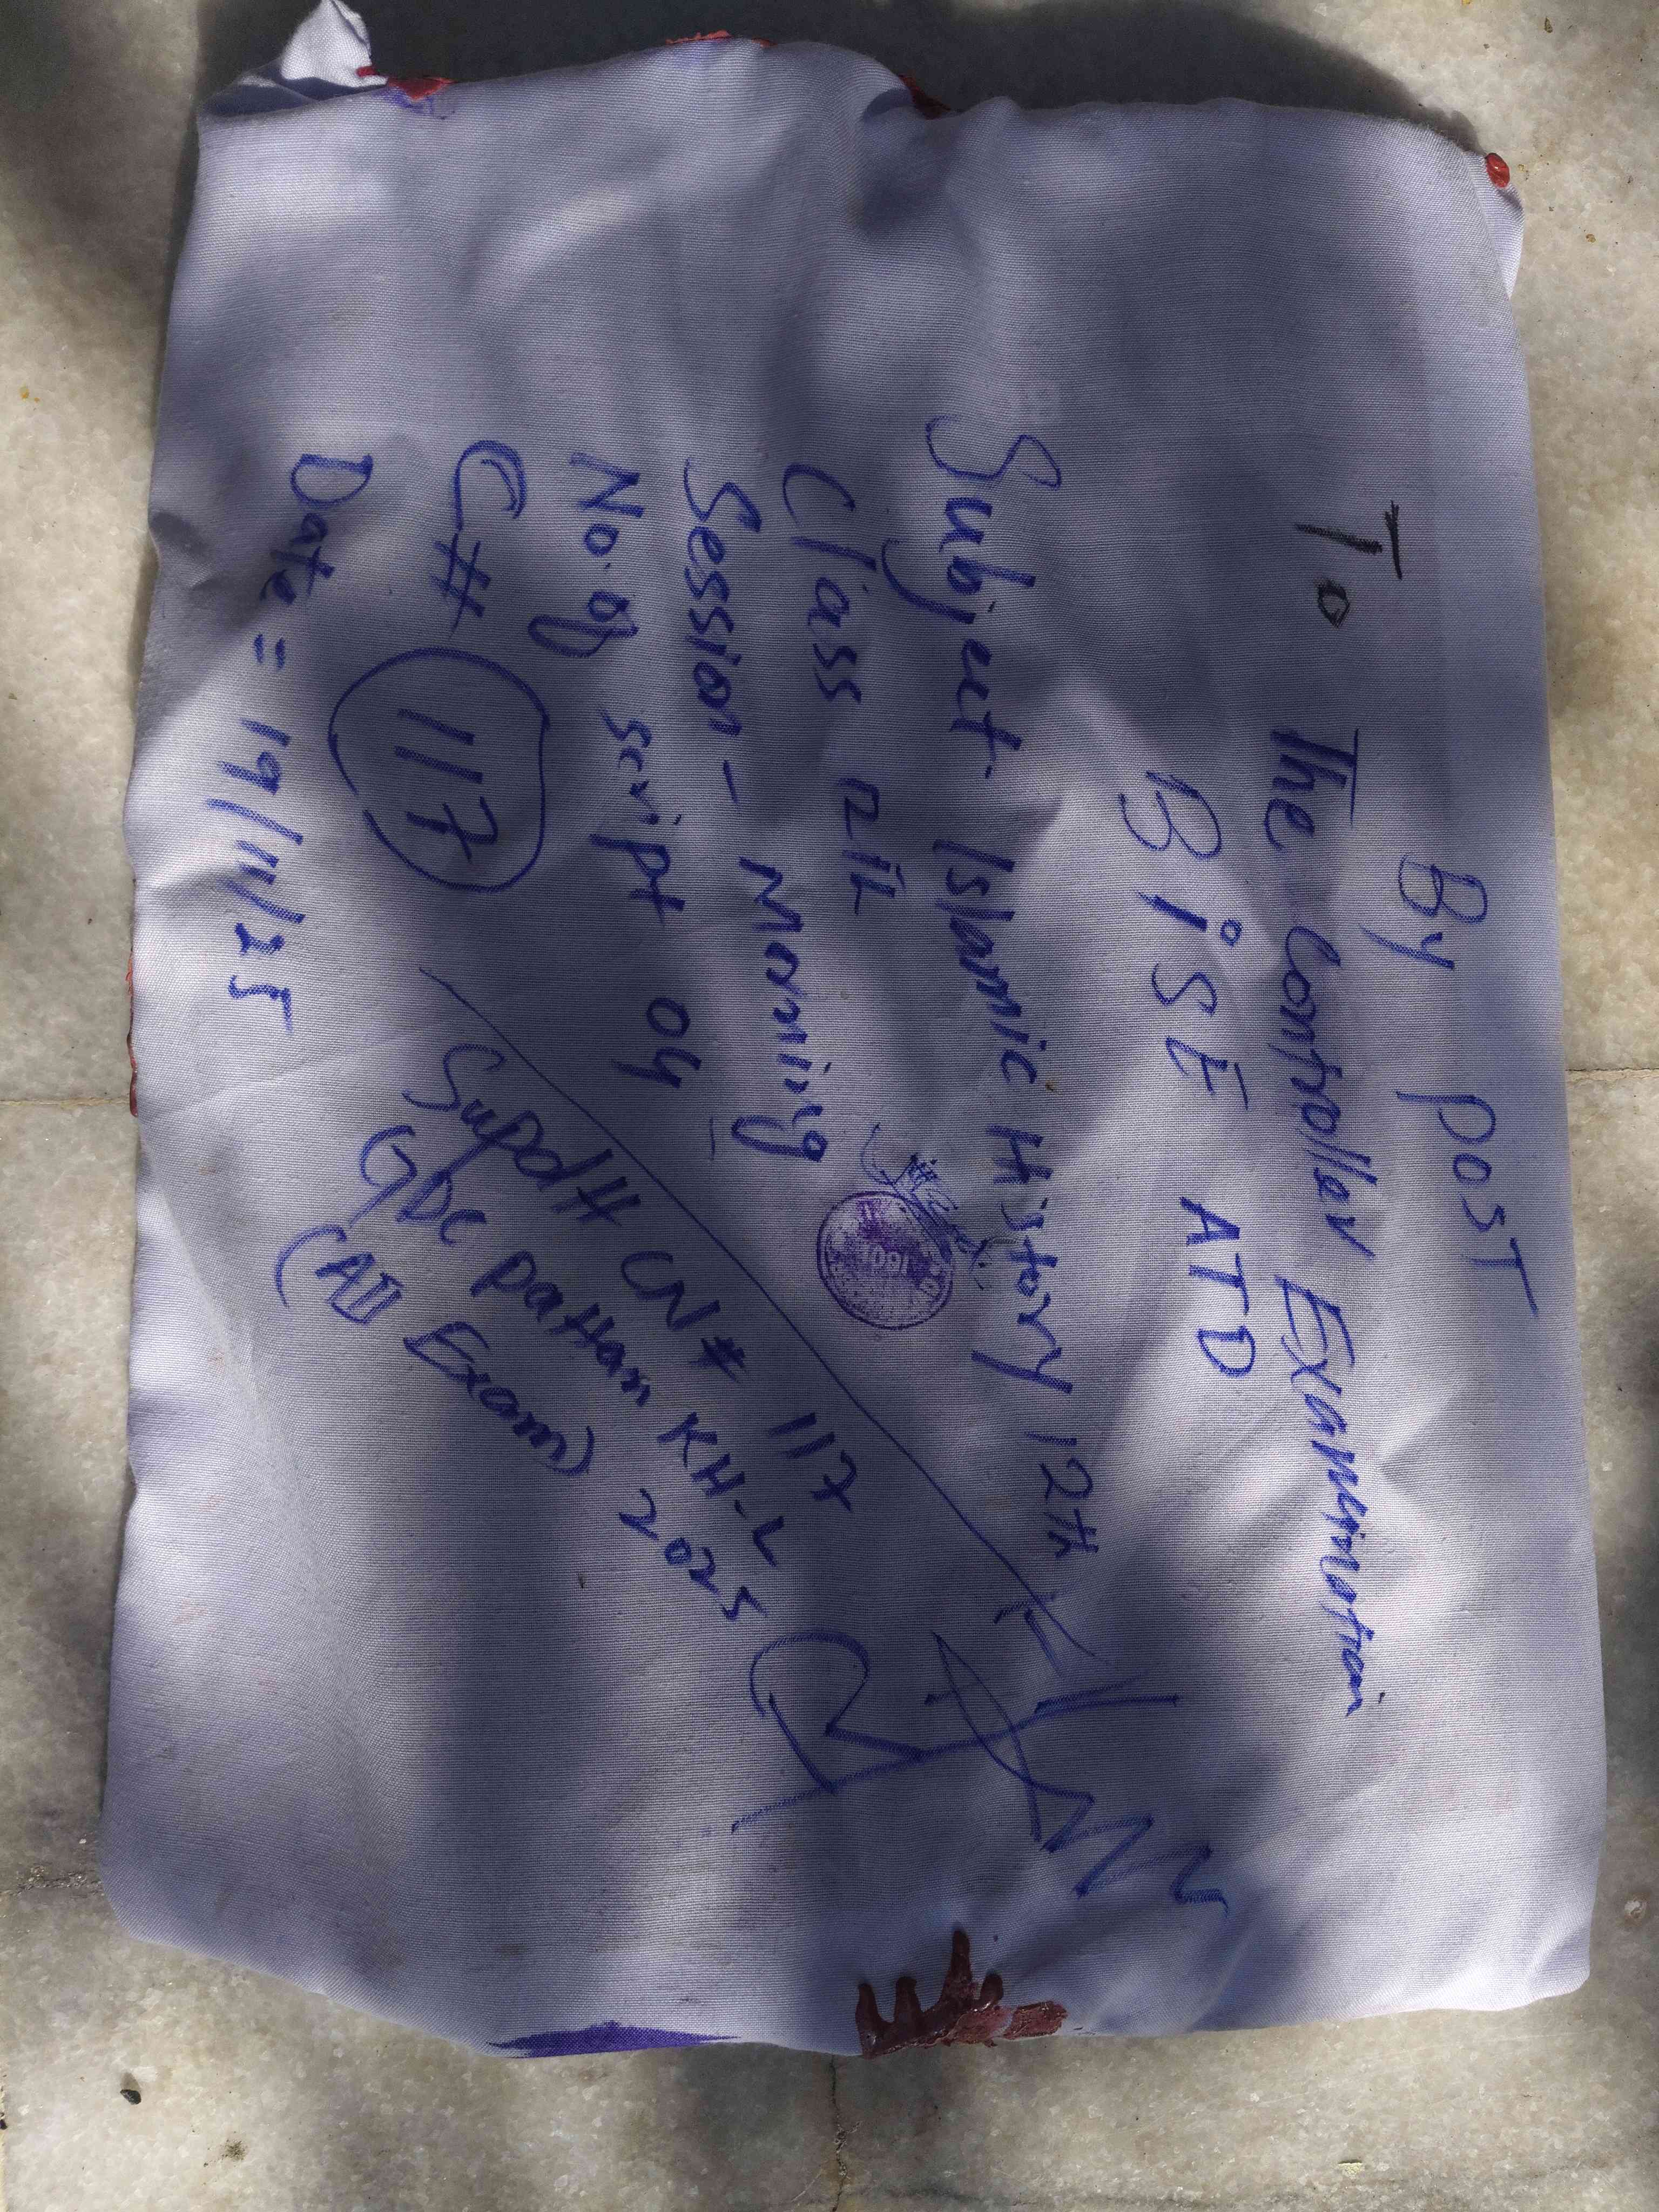 By post
To
The Controller Examination
BiSE ATD
Subject Islamic History 12th
Class
Session - Morning
No. of script 04
C# 117
Date = 19/11/25
Supdtt CN# 117
GDC pattan KH-L
(AII Exam) 2025